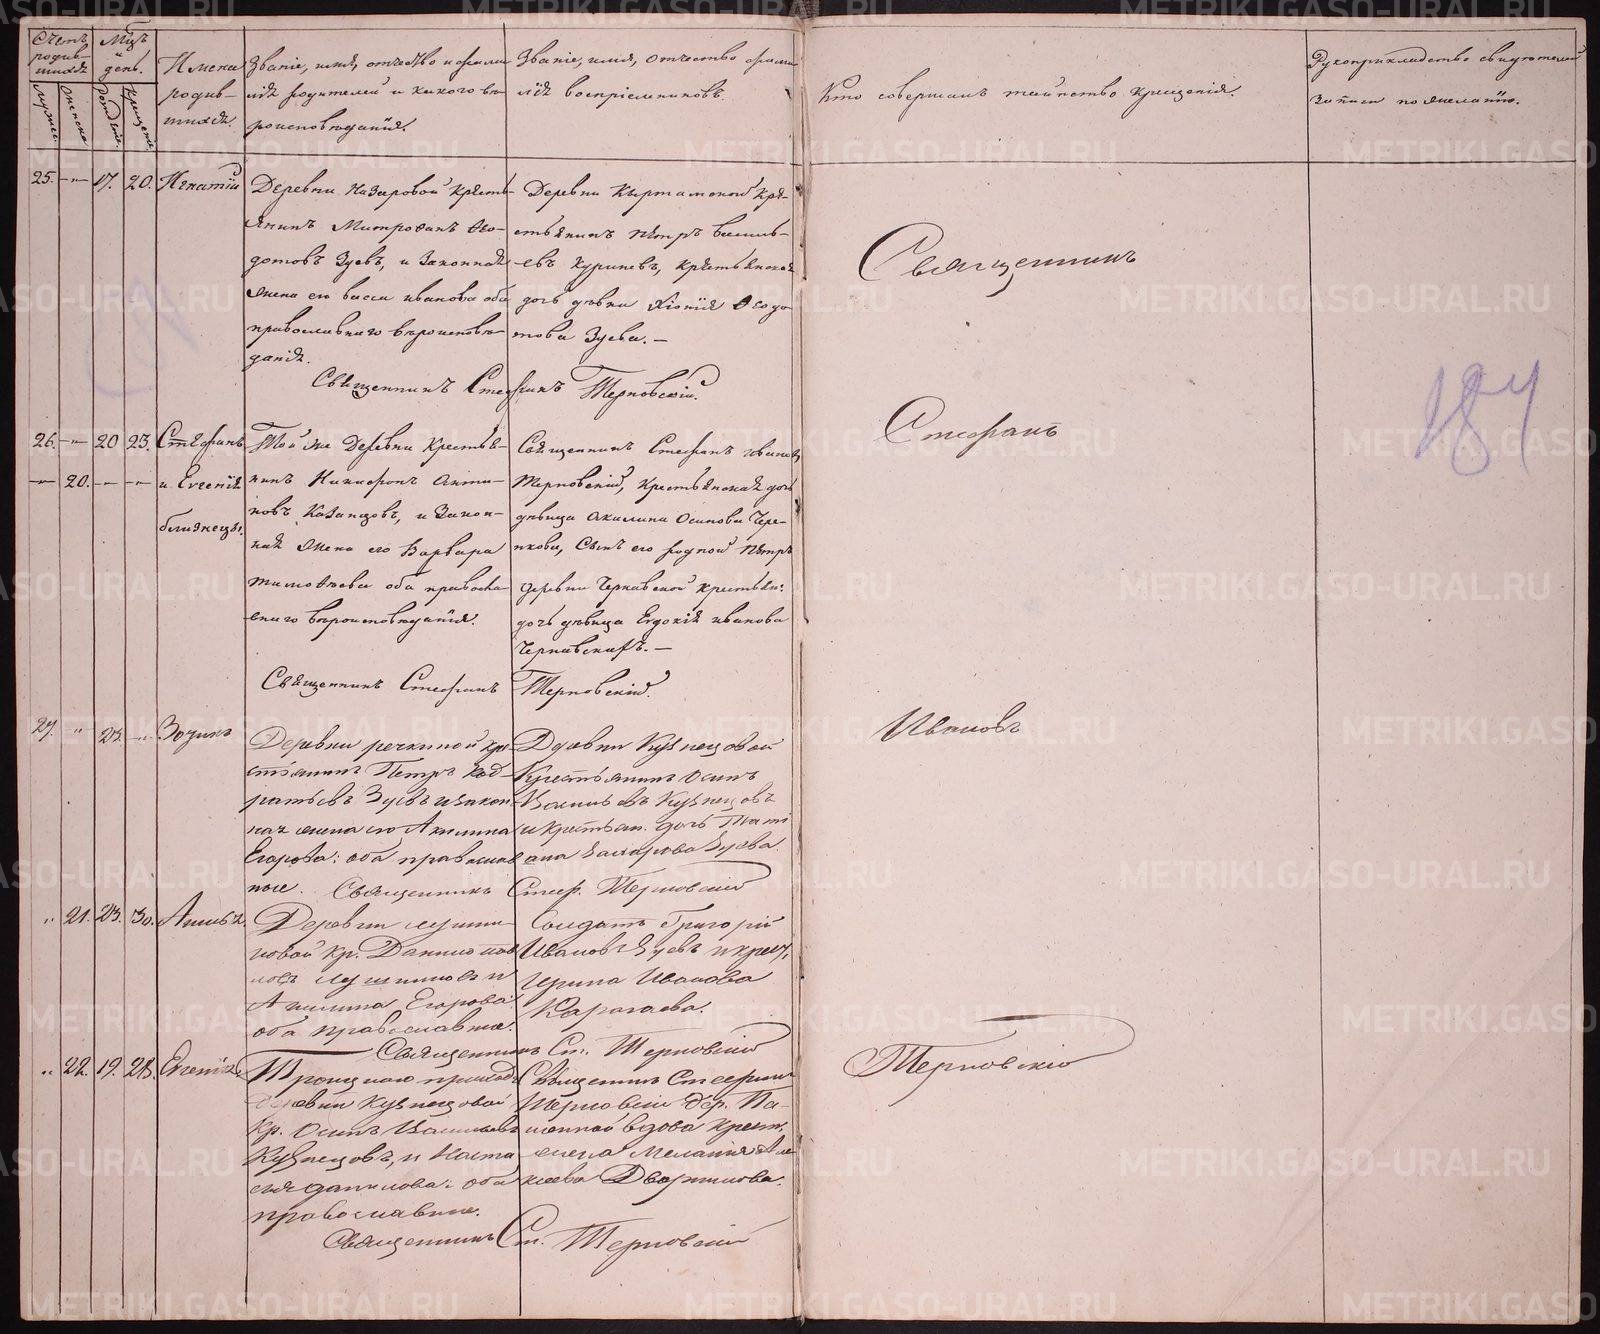 Счетъ родив-шихся
Мѣц. и день.
Имена родив-шихся.
Званіе, имя, отчество и фами-
лія родителей и какого вѣ-
роисповѣданія.
Званіе, имя, отчество фами-
лія воспріемниковъ.
Кто совершалъ таинство крещенія.
Рукоприкладство свидѣтелей
записи по желанію.
Мужск.
Женска.
Рожденіе.
Крещеніе.
25. —"— 17. 20. Игнатій
Деревни Назаровой крест-
янинъ Митрофанъ Ѳео-
дотовъ Зуевъ, и законная
жена его Васса Иванова оба
православнаго вѣроисповѣ-
данія.
Деревни Кыртамской кре-
стьянинъ Петръ Василь-
евъ Куриневъ, крестьянская
дочь дѣвка Хіонія Ѳеодо-
това Зуева. —
Священникъ Стефанъ Терновскій.
26. —"— 20 23. Стефанъ
—"— 20. —"— —"— и Евгенія
близнецы.
Той же Деревни Крестья-
нинъ Никифоръ Анти-
новъ Казанцовъ, и закон-
ная жена его Варвара
Тимоѳеева оба правосла-
внаго вѣроисповѣданія.
Священникъ Стефанъ Ивановъ
Терновскій, Крестьянская дочь
дѣвица Акилина Осипова Чере-
пкова, Сынъ его родной Петръ
деревни Чернавской крестьян.
дочь дѣвица Евдокія Иванова
Чернавскихъ. —
Священникъ Стефанъ Терновскій.
27. " 23. " Зотикъ
Деревни Речкиной кре-
стьянинъ Петръ Код-
ратьевъ Зуевъ и закон-
ная жена его Акилина
Егорова: оба православ-
ные.
Деревни Кузнецовой
Крестьянинъ Осипъ
Васильевъ Кузнецовъ
и крестьян. дочь Тати-
ана Захарова Зуева.
Священникъ Стеф. Терновскій
" 21. 23. 30. Анисья
Деревни Лушни-
ковой кр. Данило
Лушниковъ и
Акилина Егорова
оба православные.
Солдатъ Григорій
Ивановъ Зуевъ и крест.
Ирина Иванова
Карагаева.
Священникъ Ст. Терновскій
" 22. 19. 28. Евгенія
Троицкаго прихода
деревни Кузнецовой
кр. Осипъ Васильевъ
Кузнецовъ, и Наста-
сья Данилова: оба
православные.
Священникъ Стефанъ
Терновскій дер. Па-
вдова крест.
жена Меланія Але-
ксѣева Дворникова.
Священникъ Ст. Терновскій
Священникъ
Стефанъ
Ивановъ
Терновскій
184
METRIKI.GASO-URAL.RU